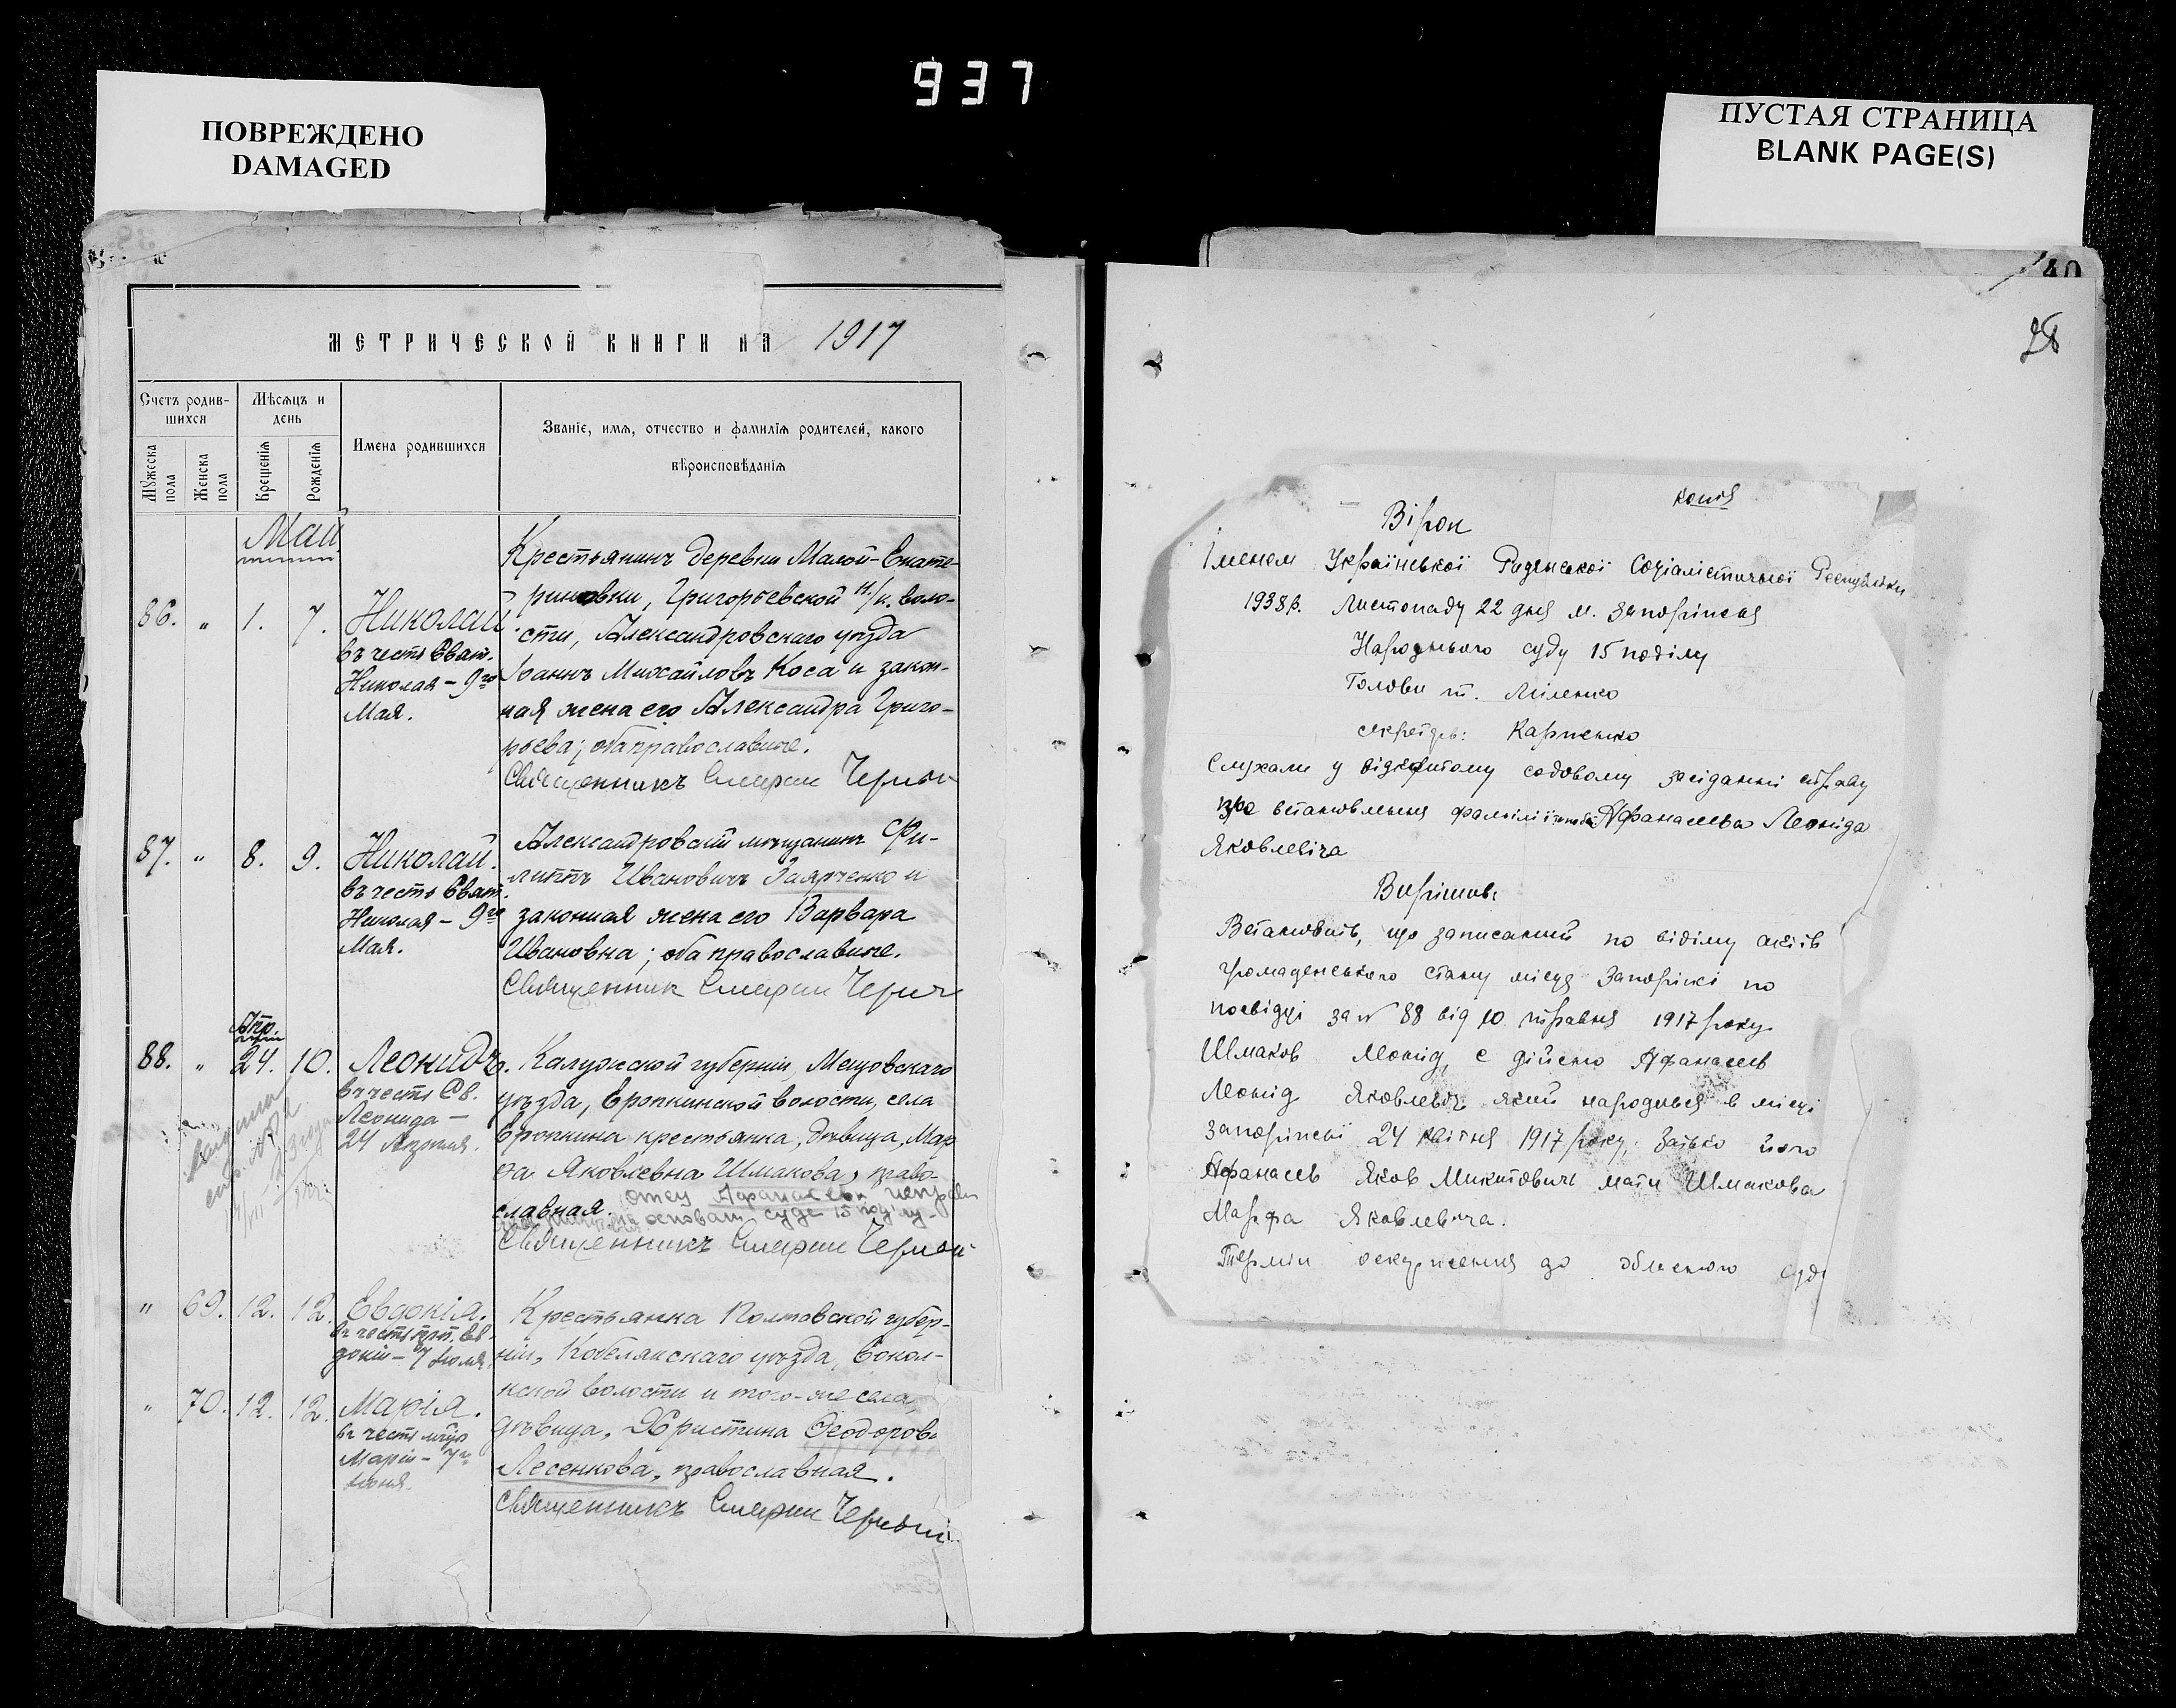 937
ПОВРЕЖДЕНО
DAMAGED
ПУСТАЯ СТРАНИЦА
BLANK PAGE(S)
МЕТРИЧЕСКОЙ КНИГИ НА 1917
Счетъ родив-
шихся
Мѣсяцъ и
день
Имена родившихся
Званіе, имя, отчество и фамилія родителей, какого
вѣроисповѣданія
Мужеска пола
Женска пола
Крещенія
Рожденія
Май
86. " 1. 7. Николай
въ честь Свят.
Николая - 9го
Мая.
Крестьянинъ деревни Малой-Екате-
риновки, Григорьевской н/к. воло-
сти, Александровскаго уѣзда
Іоаннъ Михайловъ Коса и закон-
ная жена его Александра Григо-
рьева; оба православные.
Священникъ
87. " 8. 9. Николай.
въ честь Свят.
Николая - 9го
Мая.
Александровскій мѣщанинъ Фи-
липпъ Ивановичъ Заярченко и
законная жена его Варвара
Ивановна; оба православные.
Священник
Апр.
88. " 24. 10. Леонидъ
въ честь Св.
Леонида -
24 Апреля.
Калужской губерніи, Мещовскаго
уѣзда, Еропкинской волости, села
Еропкина крестьянка, дѣвица, Мар
ѳа Яковлевна Шмакова, право-
славная. отец Афанасьев
суда 15
Священникъ
" 69. 12. 12. Евдокія.
въ честь прп. Ев-
докіи - 7
Крестьянка Полтавской губер-
ніи, Кобелякскаго уѣзда, Сокол-
" 70. 12. 12. Марія.
въ честь
Маріи - 7го
Іюня.
кской волости и того-же села,
дѣвица, Христина Ѳеодоров.
Лесенкова, православная.
Священникъ
40
28
копія
Вірок
Іменем Української Радянської Соціалістичної Республіки
1938р. Листопаду 22 дня м. Запоріжжя
Народнього суду 15 поділу
Голови т. Міленко
секретарь: Карпенко
Слухали у відкритому судовому засіданні справу
про встановлення фамілії Афанасьева Леоніда
Яковлевіча
Вирішив:
Встановить, що записаний по віділу актів
громаденського стану місця Запоріжжі по
посвідці за № 88 від 10 травня 1917 року
Шмаков Леонід, є дійсно Афанасьев
Леонід Яковлевіч який народився в місці
Запоріжжі 24 квітня 1917 року, батько його
Афанасьев Яков Микитович мати Шмакова
Марфа Яковлевича.
Термін оскарження до обласного суду